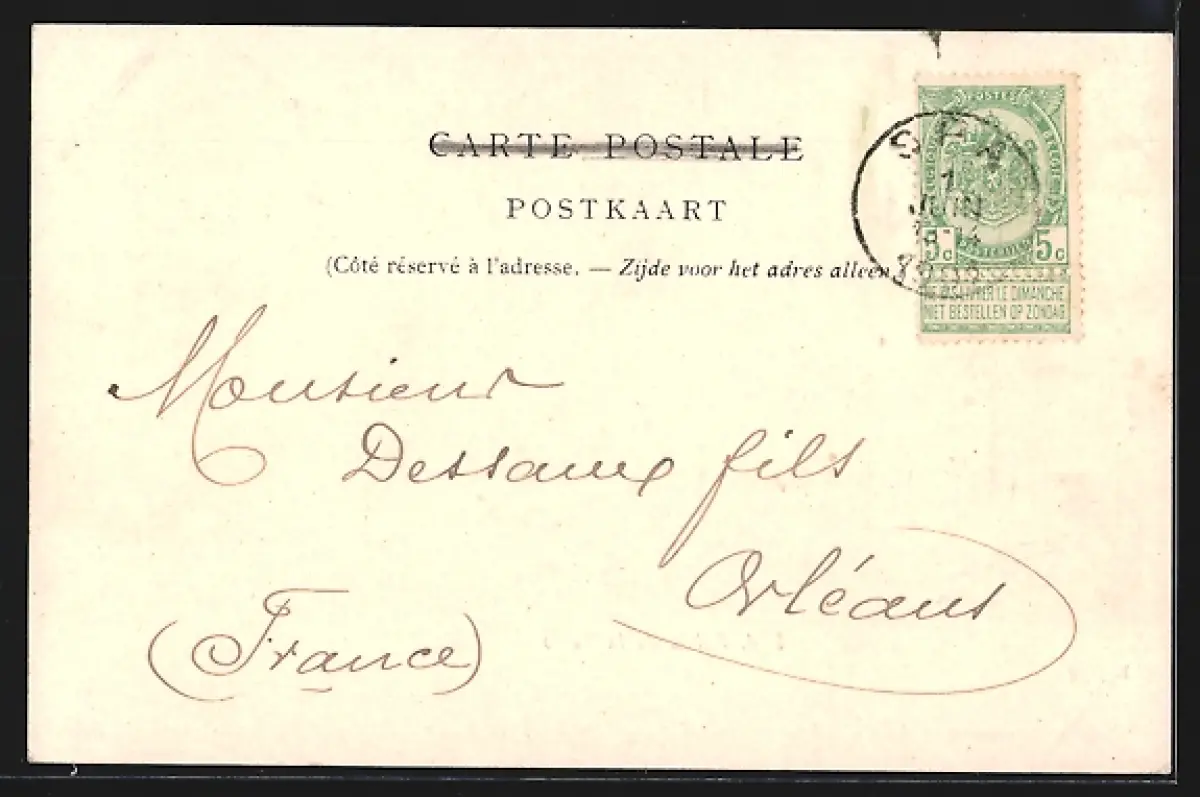 CARTE POSTALE
POSTKAART
(Côté réservé à l'adresse. — Zijde voor het adres alleen
POSTES
BELGIE
5c 5c
NE PAS LIVRER LE DIMANCHE
NIET BESTELLEN OP ZONDAG
SPA
1
JUIN
Monsieur
Dessaux fils
Orléans
(France)